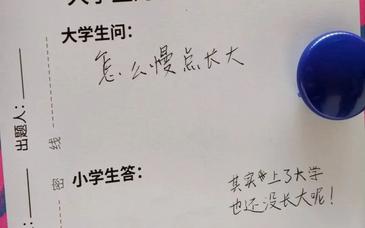 大学生问：
怎么慢点长大
出题人：
密 线
小学生答：
其实上了大学
也还没长大呢！